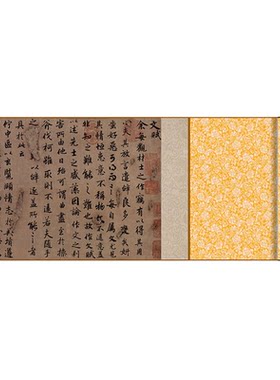 文賦
余每觀材士之作竊有以得其用
心夫其放言遣辭良多變矣妍
蚩好惡可得而言每自屬文尤見
其情恒患意不稱物文不逮意蓋
非知之難能之難也故作文賦以
述先士之盛藻因論作文之利
害所由他日殆可謂曲盡其妙至於操
斧伐柯雖取則不遠若夫隨手
之變良難以辭逮蓋所能言之者
具於此云
佇中區以玄覽頤情志於典墳遵